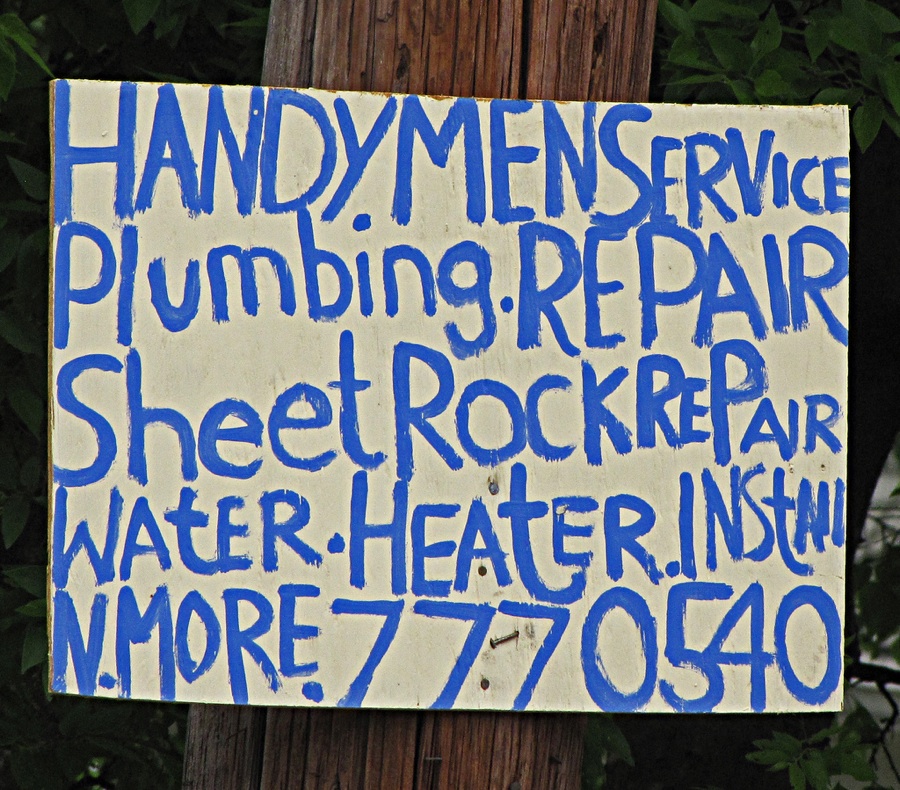 HANDYMEN SERVICE
Plumbing. REPAIR
Sheet ROCK REPAIR
WAtER. HEAtER. INStAll
N. MORE. 7770540